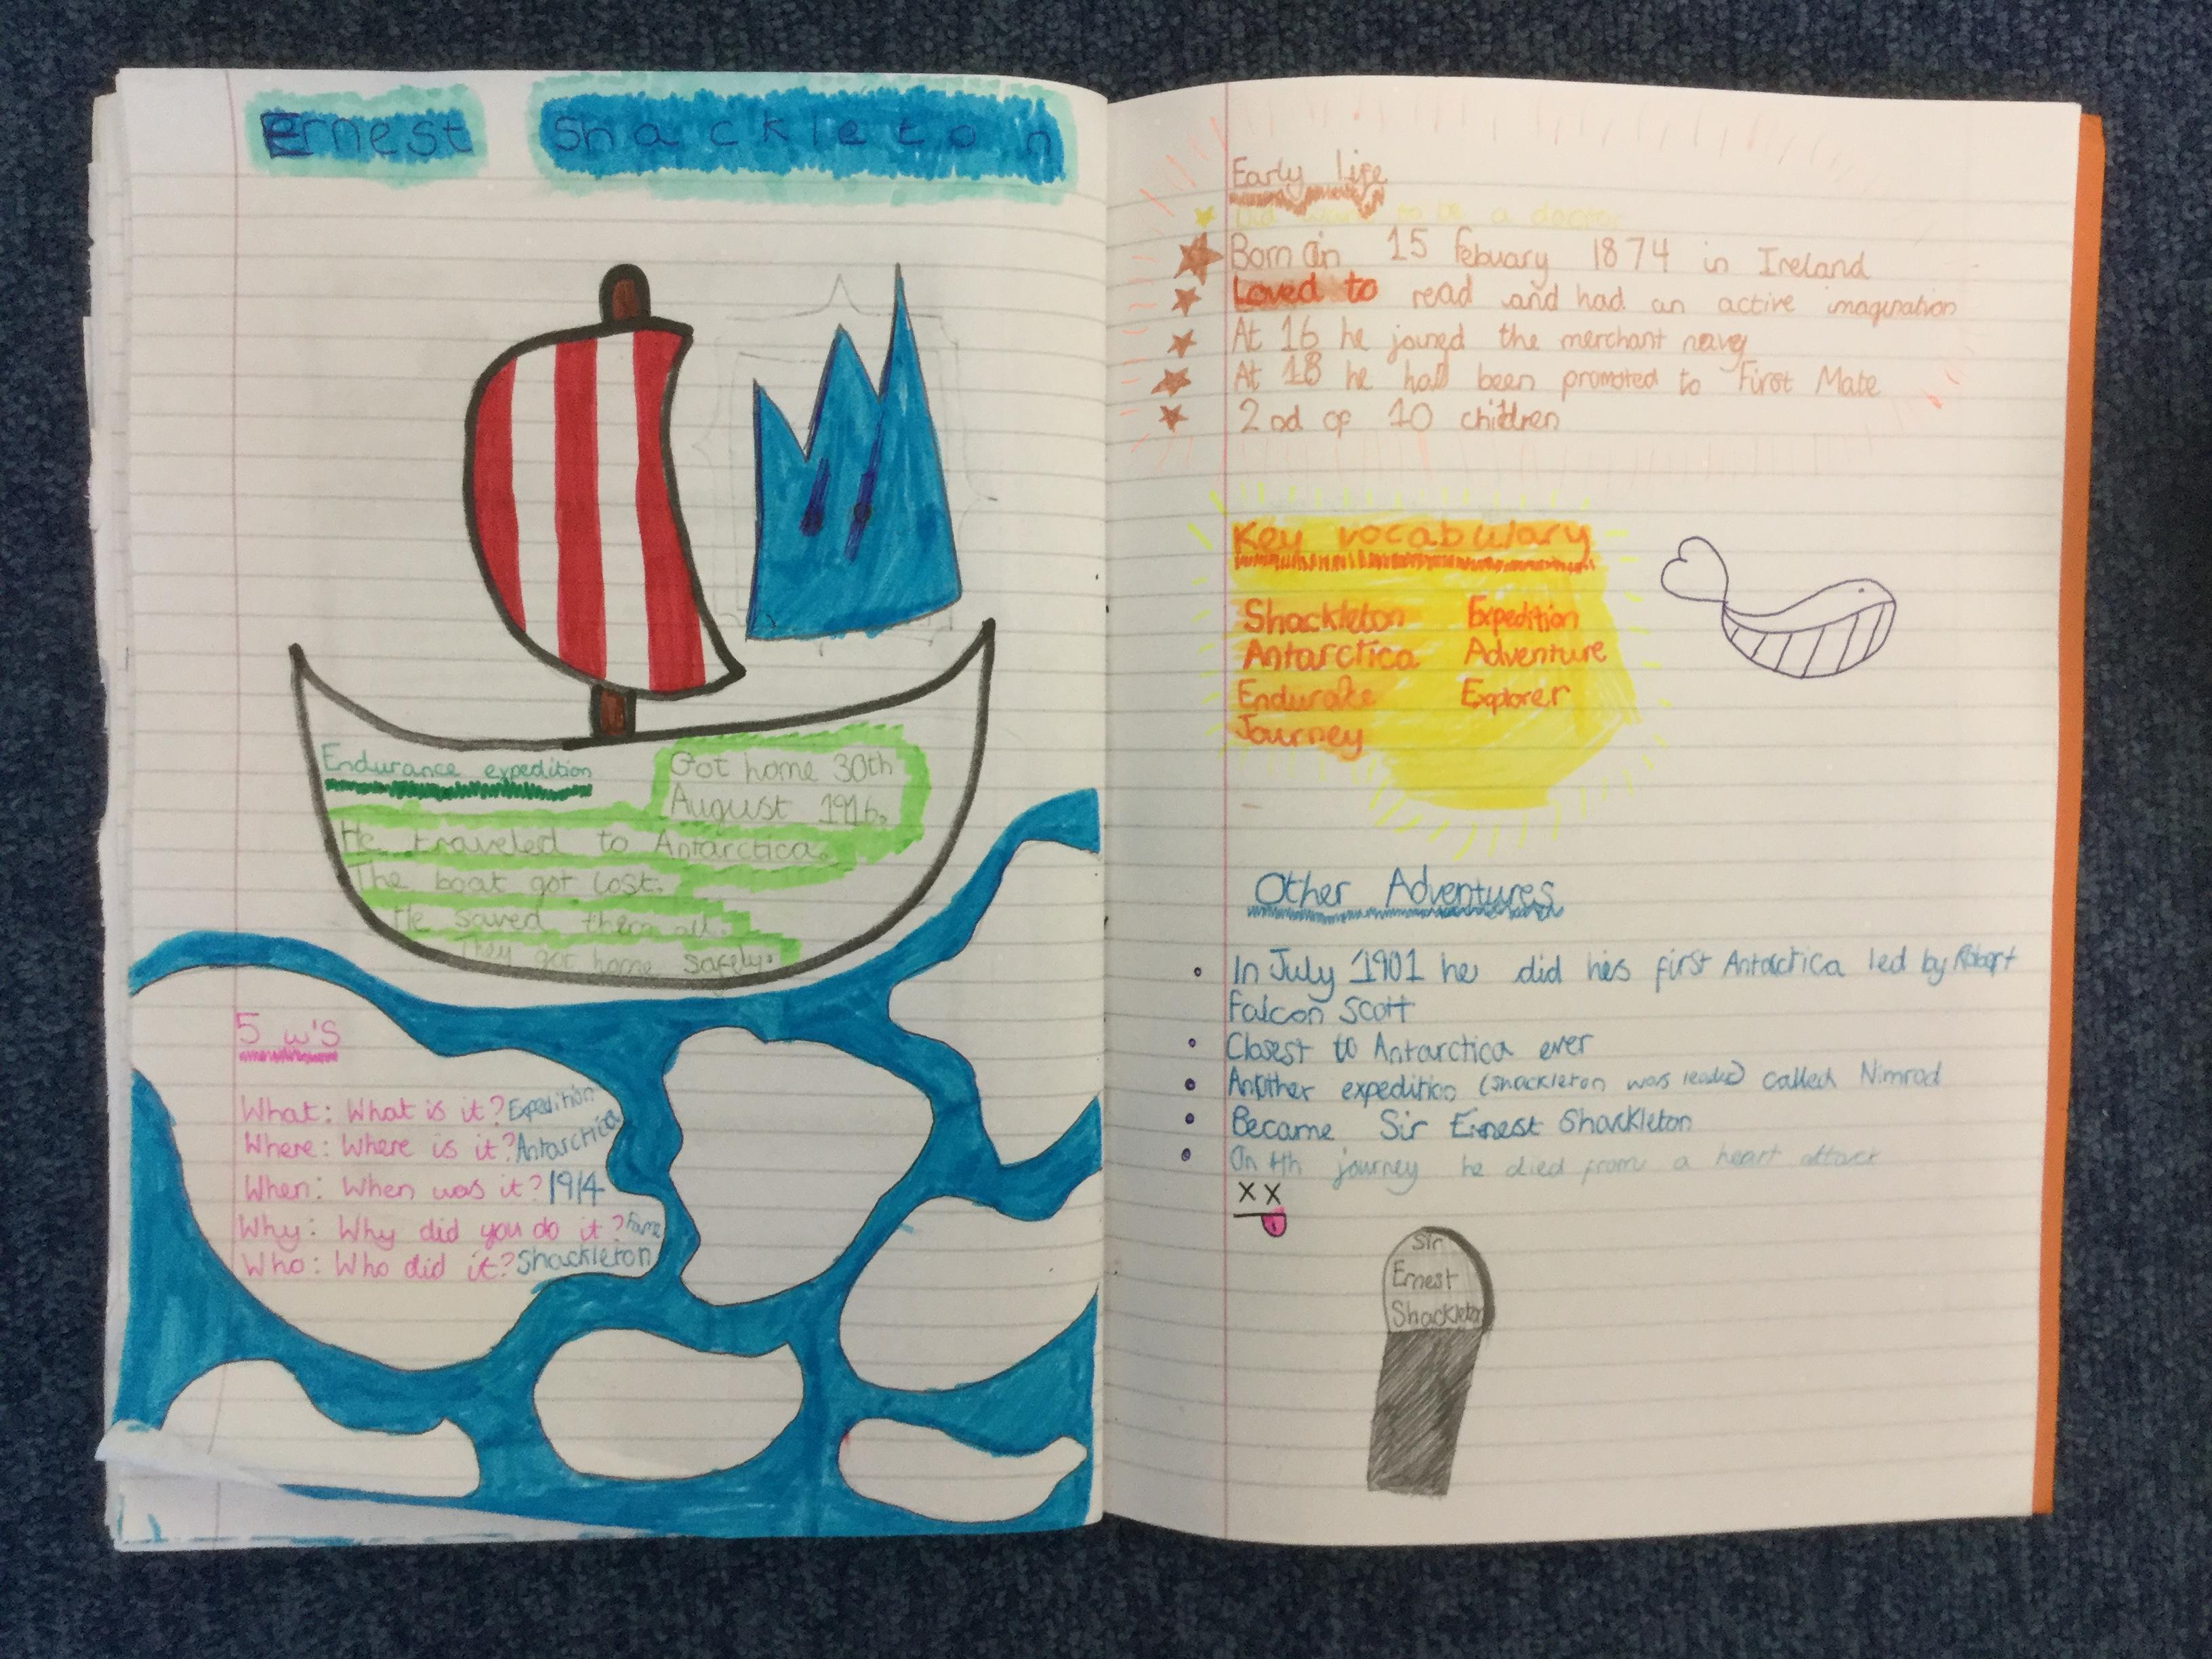 Ernest Shackleton
Endurance expedition
Got home 30th
August 1916.
He traveled to Antarctica.
The boat got lost.
He saved them all.
They got home safely.
5 w's
What: What is it? Expedition
Where: Where is it? Antarctica
When: When was it? 1914
Why: Why did you do it? Fame
Who: Who did it? Shackleton
Early life
Did want to be a doctor
Born in 15 Febuary 1874 in Ireland
Loved to read and had an active imagination
At 16 he joined the merchant navy
At 18 he had been promoted to First Mate
2nd of 10 children
Key vocabulary
Shackleton Expedition
Antarctica Adventure
Explorer
Journey
Other Adventures
In July 1901 he did his first Antarctica led by Robert
Falcon Scott
Closest to Antarctica ever
Another expedition (Shackleton was leader) called Nimrod
Became Sir Ernest Shackleton
On 4th journey he died from a heart attack
Sir
Ernest
Shackleton